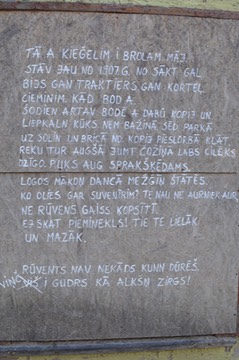 TĀ A ĶIEĢELIM I BROLAM MĀJ
STĀV JAU NO 1907.G. NO SĀKT GAL
BIJS GAN TRAKTIERS GAN KORTEL
CIEMINIM. KĀD BOD A.
ŠODIEN ARTAV BODĒ A DABŪ KOPIŽ UN
LIEPKALN KŪKS. NEM BAŽINĀ SĒD PARKĀ
UZ SOLIN UN BRĪCĀ NO KOPIŽ PIESLORBĀ KLĀT
REKU TUR AUGŠĀ JUMT ČOZINA LABS CILĒKS
DZĪGO. PUĶS AUG SPRAKŠĶĒDAMS.
LOGOS MĀKON DANCĀ MEŽGIN ŠTATĒS.
KO DLIES GAR SUVENĪRIM? TE NAU NE AURIEK-AUR,
NE RŪVENS GAISS KOPSITĪ.
EJ SKAT PIEMINEKĻS! TIE TE LIELĀK
UN MAZĀK.
RŪVENTS NAV NEKĀDS KUNN DŪRĒS.
VIŅČ I GUDRS KĀ ALKSN ZIRGS!